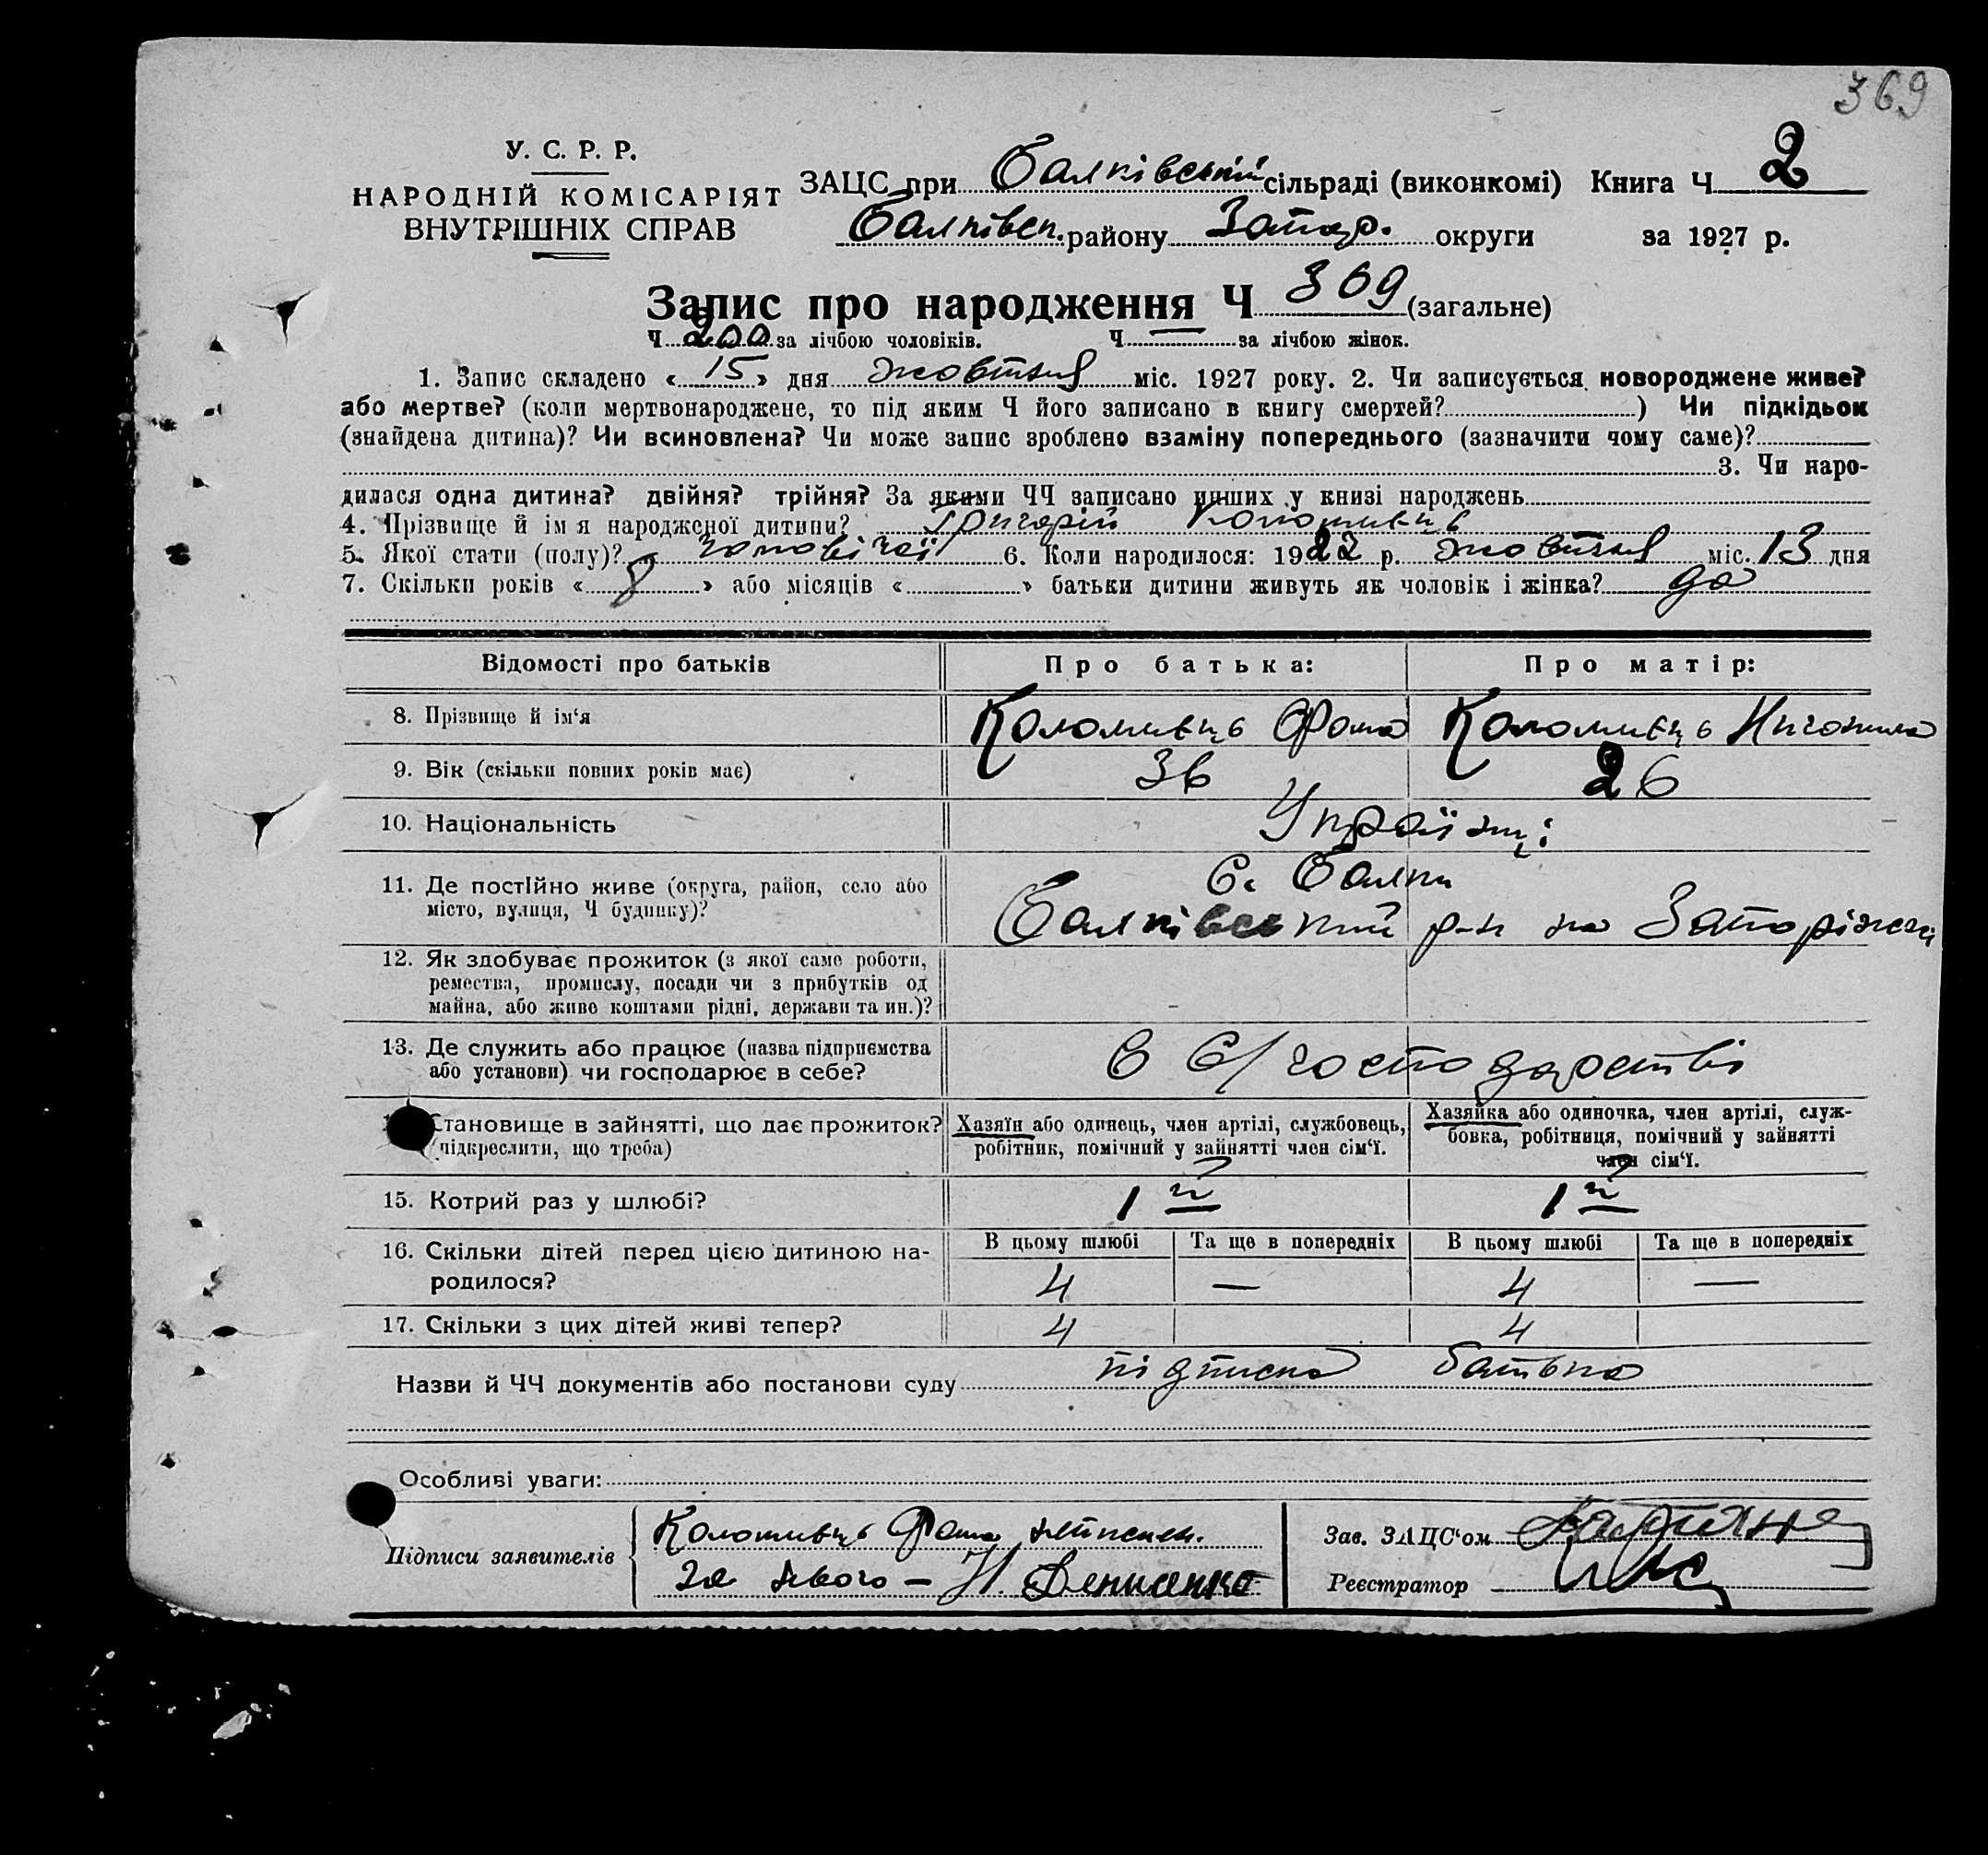 369
У. С. Р. Р.
НАРОДНІЙ КОМІСАРІЯТ
ВНУТРІШНІХ СПРАВ
ЗАЦС при Балківській сільраді (виконкомі) Книга Ч 2
Балківськ. району Запор. округи за 1927 р.
Запис про народження Ч 369 (загальне)
Ч 200 за лічбою чоловіків. Ч — за лічбою жінок.
1. Запис складено « 15 » дня жовтня міс. 1927 року. 2. Чи записується новороджене живе?
або мертве? (коли мертвонароджене, то під яким Ч його записано в книгу смертей? ) Чи підкідьок
(знайдена дитина)? Чи всиновлена? Чи може запис зроблено взаміну попереднього (зазначити чому саме)?
3. Чи наро-
дилася одна дитина? двійня? трійня? За якими ЧЧ записано инших у книзі народжень
4. Прізвище й ім я народженої дитини? Григорій Коломиець
5. Якої стати (полу)? чоловічої 6. Коли народилося: 1922 р. жовтня міс. 13 дня
7. Скільки років « 8 » або місяців « » батьки дитини живуть як чоловік і жінка? да
Відомості про батьків
Про батька:
Про матір:
8. Прізвище й ім‘я
Коломиець Фома
Коломиець
9. Вік (скільки повних років має)
36
26
10. Національність
Українці
11. Де постійно живе (округа, район, село або
місто, вулиця, Ч будинку)?
С. Балки
Балківський р-н на Запоріжжі
12. Як здобуває прожиток (з якої саме роботи,
ремества, промислу, посади чи з прибутків од
майна, або живе коштами рідні, держави та ин.)?
13. Де служить або працює (назва підприємства
або установи) чи господарює в себе?
В С/господарстві
Становище в зайнятті, що дає прожиток?
(підкреслити, що треба)
Хазяїн або одинець, член артілі, службовець,
робітник, помічний у зайнятті член сім‘ї.
Хазяйка або одиночка, член артілі, служ-
бовка, робітниця, помічний у зайнятті
член сім‘ї.
15. Котрий раз у шлюбі?
1й
1й
16. Скільки дітей перед цією дитиною на-
родилося?
В цьому шлюбі
Та ще в попередніх
В цьому шлюбі
Та ще в попередніх
4 — 4 —
17. Скільки з цих дітей живі тепер?
4 4
Назви й ЧЧ документів або постанови суду підписка батька
Особливі уваги:
Підписи заявителів
Коломиець Фома неписьмен.
за нього — Н. Денисенко
Зав. ЗАЦС‘ом
Реєстратор